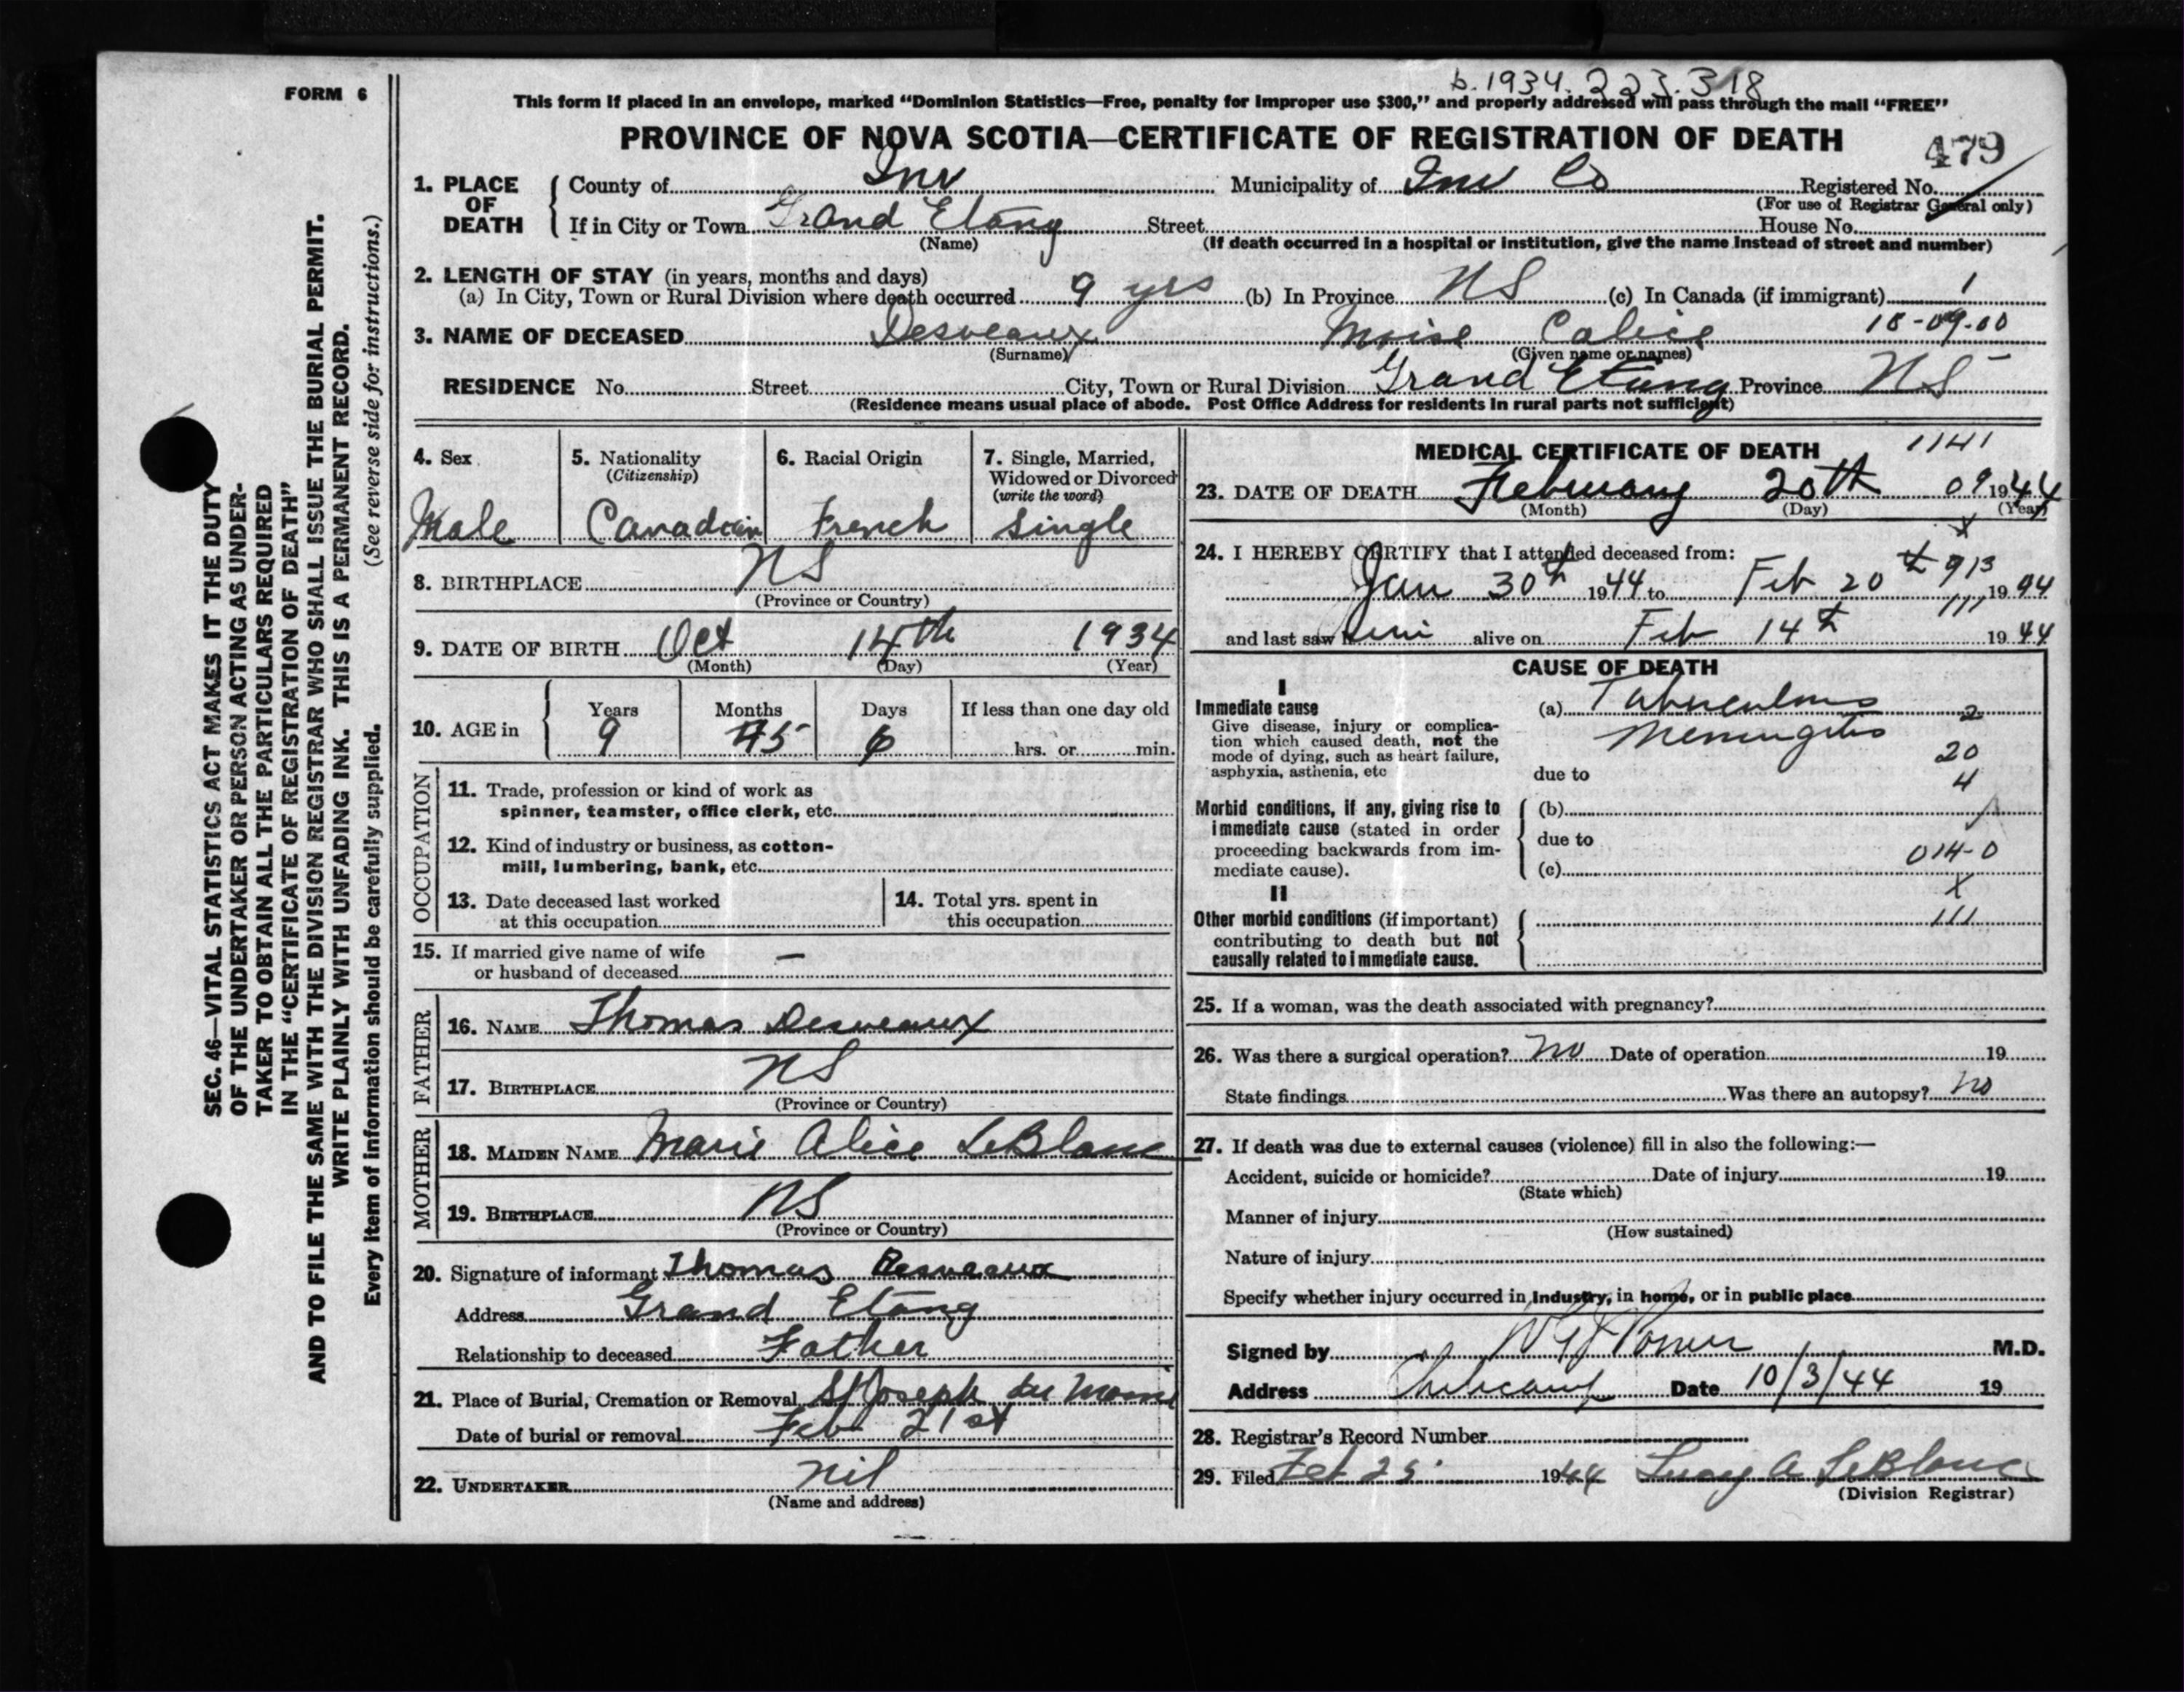 FORM 6
b. 1934. 223. 318
This form if placed in an envelope, marked “Dominion Statistics—Free, penalty for improper use $300,” and properly addressed will pass through the mail “FREE”
PROVINCE OF NOVA SCOTIA—CERTIFICATE OF REGISTRATION OF DEATH
479
1. PLACE OF DEATH
County of Inv Municipality of Inv Co Registered No.
(For use of Registrar General only)
If in City or Town Grand Etang Street House No.
(Name) (If death occurred in a hospital or institution, give the name instead of street and number)
2. LENGTH OF STAY (in years, months and days)
(a) In City, Town or Rural Division where death occurred 9 yrs (b) In Province NS (c) In Canada (if immigrant) 1
3. NAME OF DECEASED Desveaux Moise 18-09-00
(Surname) (Given name or names)
RESIDENCE No. Street City, Town or Rural Division Grand Etang Province NS
(Residence means usual place of abode. Post Office Address for residents in rural parts not sufficient)
4. Sex
Male
5. Nationality
(Citizenship)
Canadian
6. Racial Origin
French
7. Single, Married,
Widowed or Divorced
(write the word)
Single
8. BIRTHPLACE NS
(Province or Country)
9. DATE OF BIRTH Oct 14th 1934
(Month) (Day) (Year)
10. AGE in
Years Months Days If less than one day old
9 5 6 hrs. or min.
OCCUPATION
11. Trade, profession or kind of work as
spinner, teamster, office clerk, etc.
12. Kind of industry or business, as cotton-
mill, lumbering, bank, etc.
13. Date deceased last worked
at this occupation
14. Total yrs. spent in
this occupation
15. If married give name of wife —
or husband of deceased
FATHER
16. NAME Thomas Desveaux
17. BIRTHPLACE NS
(Province or Country)
MOTHER
18. MAIDEN NAME Marie Alice LeBlanc
19. BIRTHPLACE NS
(Province or Country)
20. Signature of informant Thomas Desveaux
Address Grand Etang
Relationship to deceased Father
21. Place of Burial, Cremation or Removal St Joseph du Moine
Date of burial or removal Feb 21st
22. UNDERTAKER Nil
(Name and address)
MEDICAL CERTIFICATE OF DEATH 1141
23. DATE OF DEATH February 20th 09 1944
(Month) (Day) (Year)
X
24. I HEREBY CERTIFY that I attended deceased from:
Jan 30th 1944 to Feb 20th 913 1944
111
and last saw him alive on Feb 14th 1944
CAUSE OF DEATH
I
Immediate cause
Give disease, injury or complica-
tion which caused death, not the
mode of dying, such as heart failure,
asphyxia, asthenia, etc
(a) Tuberculous 2
Meningitis
20
due to 4
Morbid conditions, if any, giving rise to
immediate cause (stated in order
proceeding backwards from im-
mediate cause).
(b)
due to
014-0
(c)
X
II
Other morbid conditions (if important)
contributing to death but not
causally related to immediate cause.
111
25. If a woman, was the death associated with pregnancy?
26. Was there a surgical operation? No Date of operation 19
State findings Was there an autopsy? No
27. If death was due to external causes (violence) fill in also the following:—
Accident, suicide or homicide? Date of injury 19
(State which)
Manner of injury
(How sustained)
Nature of injury
Specify whether injury occurred in industry, in home, or in public place
Signed by Power M.D.
Address Cheticamp Date 10/3/44 19
28. Registrar's Record Number
29. Filed Feb 25 1944 Lucy A LeBlanc
(Division Registrar)
SEC. 46—VITAL STATISTICS ACT MAKES IT THE DUTY
OF THE UNDERTAKER OR PERSON ACTING AS UNDER-
TAKER TO OBTAIN ALL THE PARTICULARS REQUIRED
IN THE “CERTIFICATE OF REGISTRATION OF DEATH”
AND TO FILE THE SAME WITH THE DIVISION REGISTRAR WHO SHALL ISSUE THE BURIAL PERMIT.
WRITE PLAINLY WITH UNFADING INK. THIS IS A PERMANENT RECORD.
Every item of information should be carefully supplied. (See reverse side for instructions.)